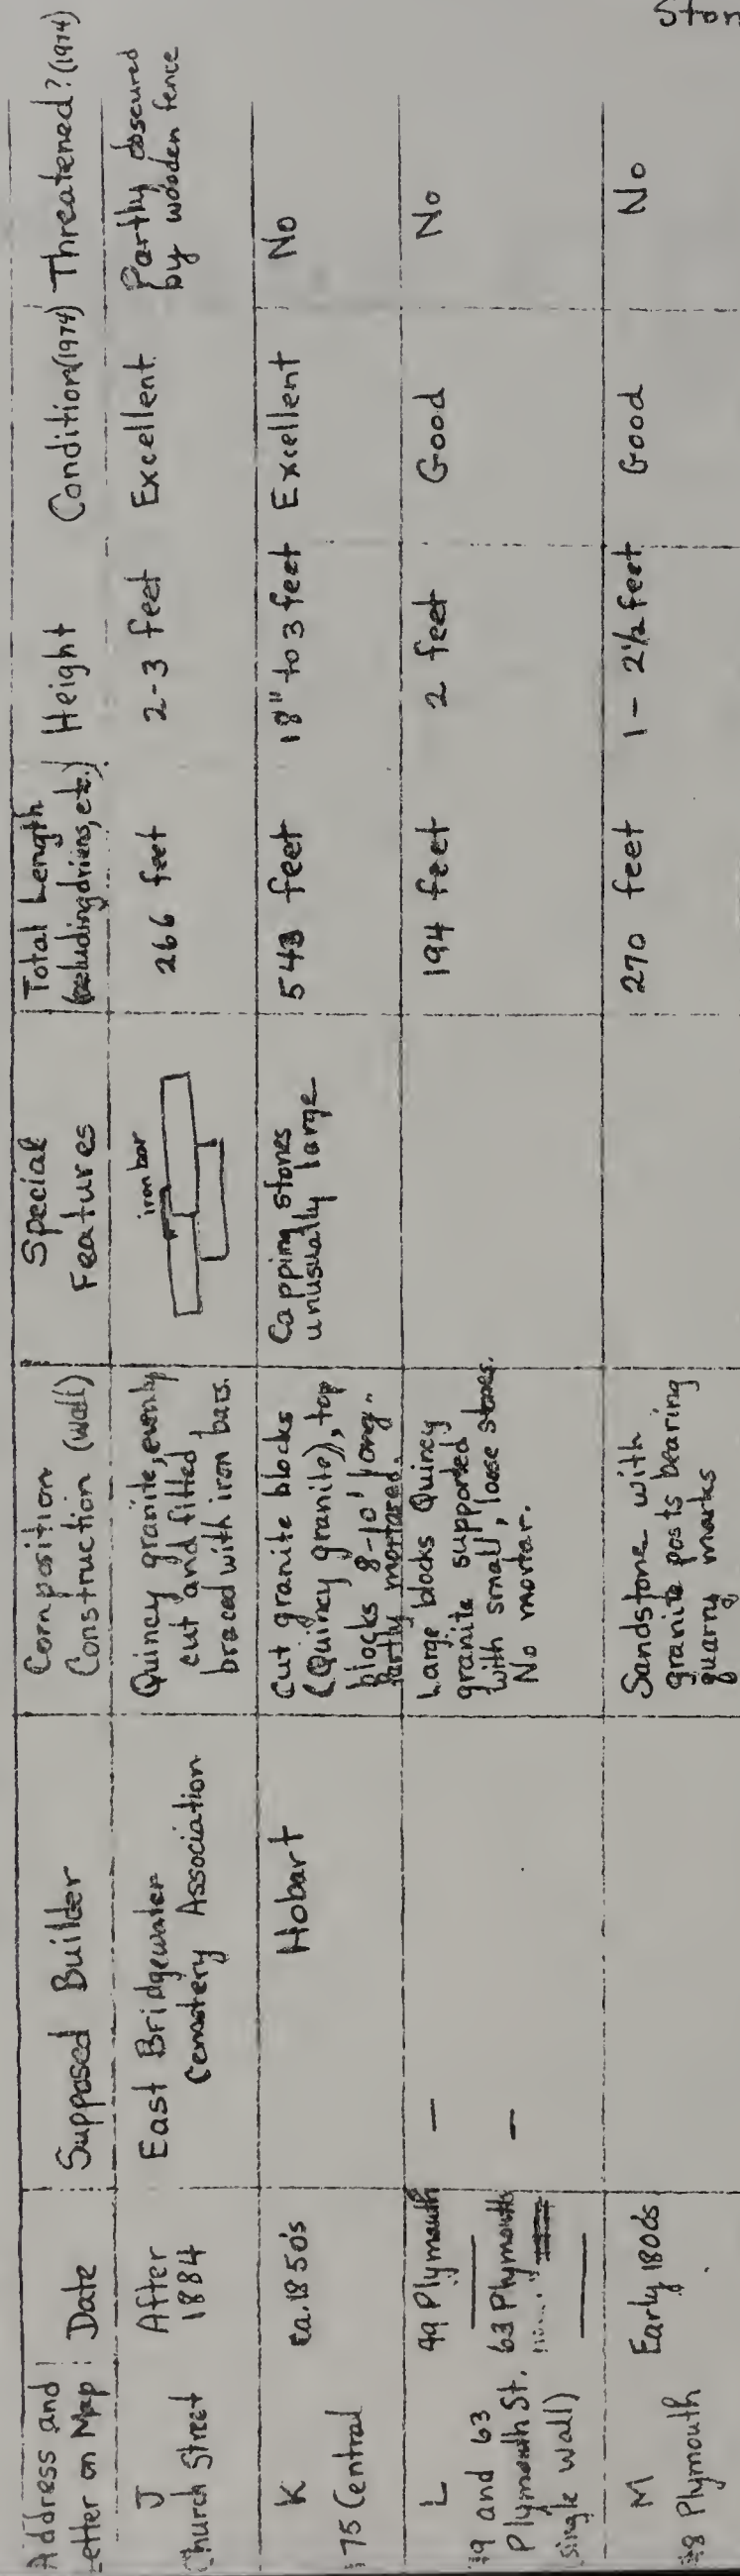 Ston
Address and
Letter on Map
Date
Supposed Builder
Composition
Construction (wall)
Special
Features
Total Length
(excluding drives, etc.)
Height
Condition (1974)
Threatened? (1974)
J
Church Street
After
1884
East Bridgewater
Cemetery Association
Quincy granite, evenly
cut and fitted,
braced with iron bars.
iron bar
266 feet
2-3 feet
Excellent
Partly obscured
by wooden fence
K
175 Central
ca. 1850's
Hobart
Cut granite blocks
(Quincy granite), top
blocks 8-10' long.
Partly mortared.
Capping stones
unusually large
543 feet
18" to 3 feet
Excellent
No
L
49 and 63
Plymouth St.
(single wall)
49 Plymouth
—
63 Plymouth
—
—
—
Large blocks Quincy
granite supported
with small, loose stones.
No mortar.
194 feet
2 feet
Good
No
M
Plymouth
Early 1800s
Sandstone with
granite posts bearing
quarry marks
270 feet
1 - 2½ feet
Good
No